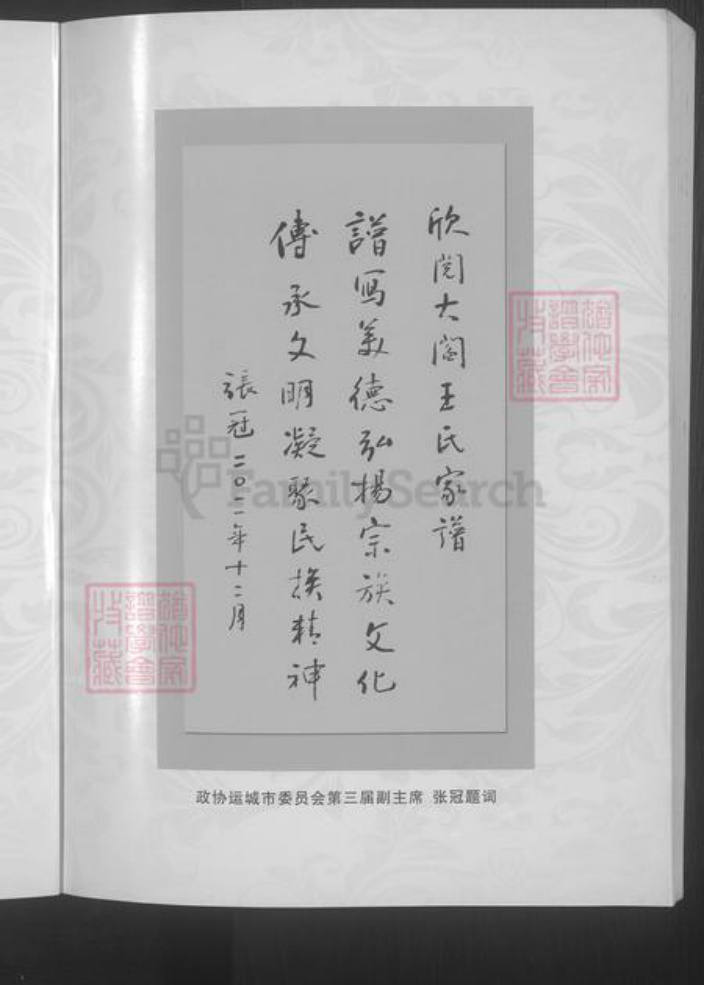 欣阅大阎王氏家谱
譜写美德弘揚宗族文化
傳承文明凝聚民族精神
張冠 二〇一一年十二月
政协运城市委员会第三届副主席 张冠题词
FamilySearch